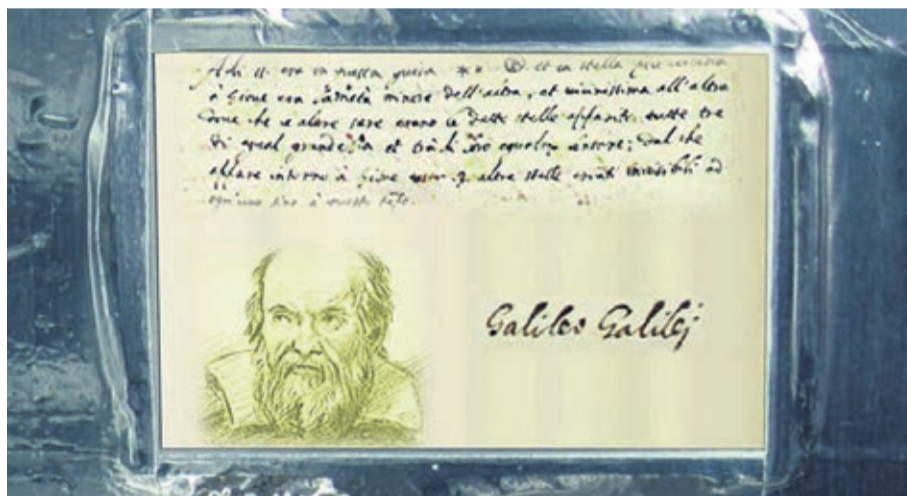 Adi 11 era in questa guisa ** et la stella più vicina
à Giove era la metà minore dell'altra, et vicinissima all'altra
dove che le altre sere erano le dette stelle apparite tutte tre
di equal grandezza et trà di loro equalmente lontane; dal che
appare intorno à Giove esser 3 altre stelle erranti invisibili ad
ogni uno sino à questo tempo.
Galileo Galilej